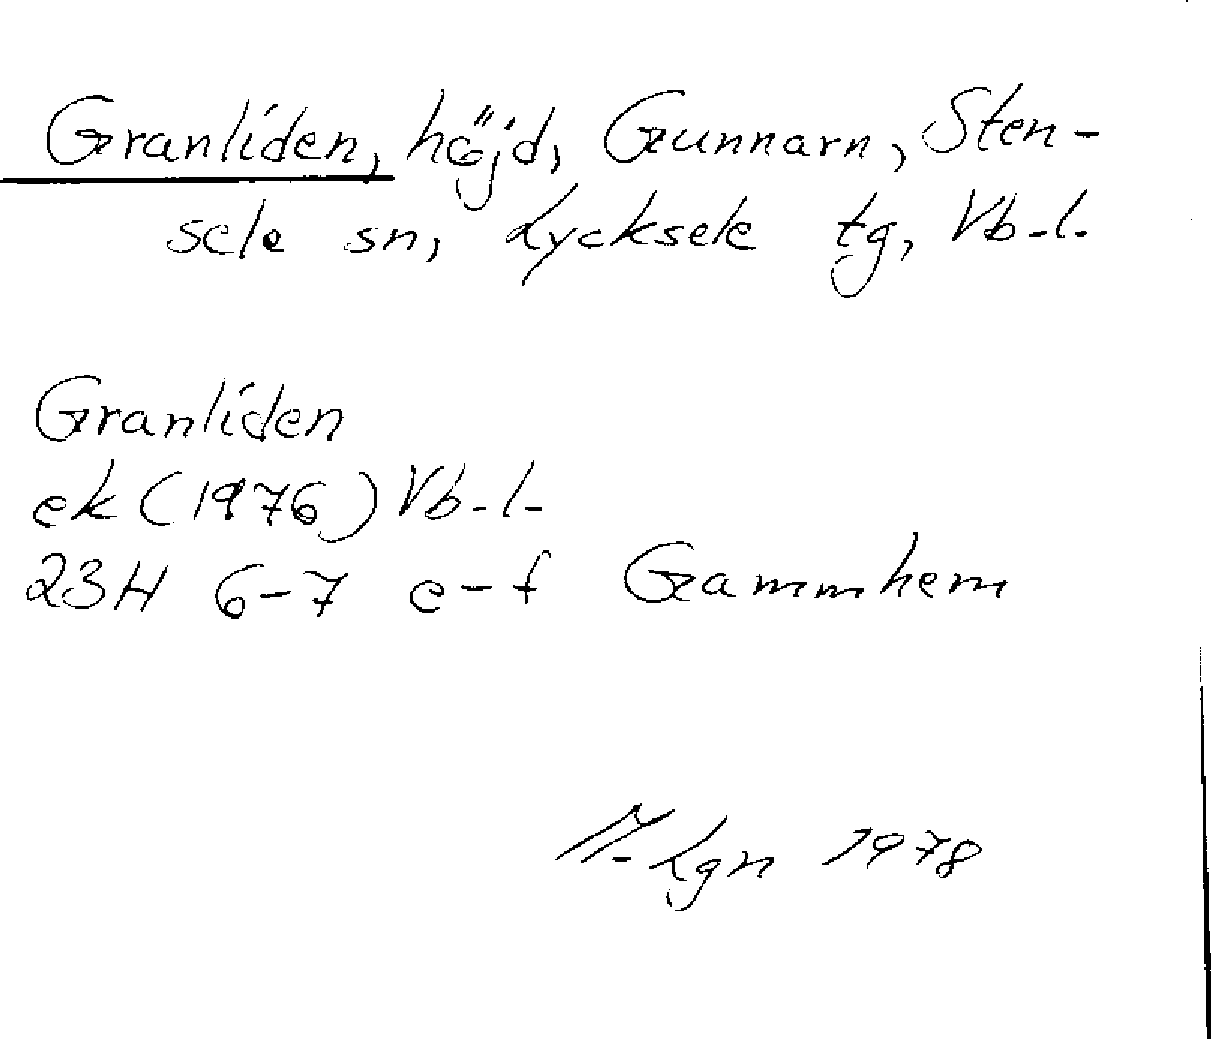 Granliden, höjd, Gunnarn, Sten-
sele sn, Lycksele tg, Vb.l.
Granliden
ek (1976) Vb.l.
23H 6-7 e-f Gammhem
Lgn 1978